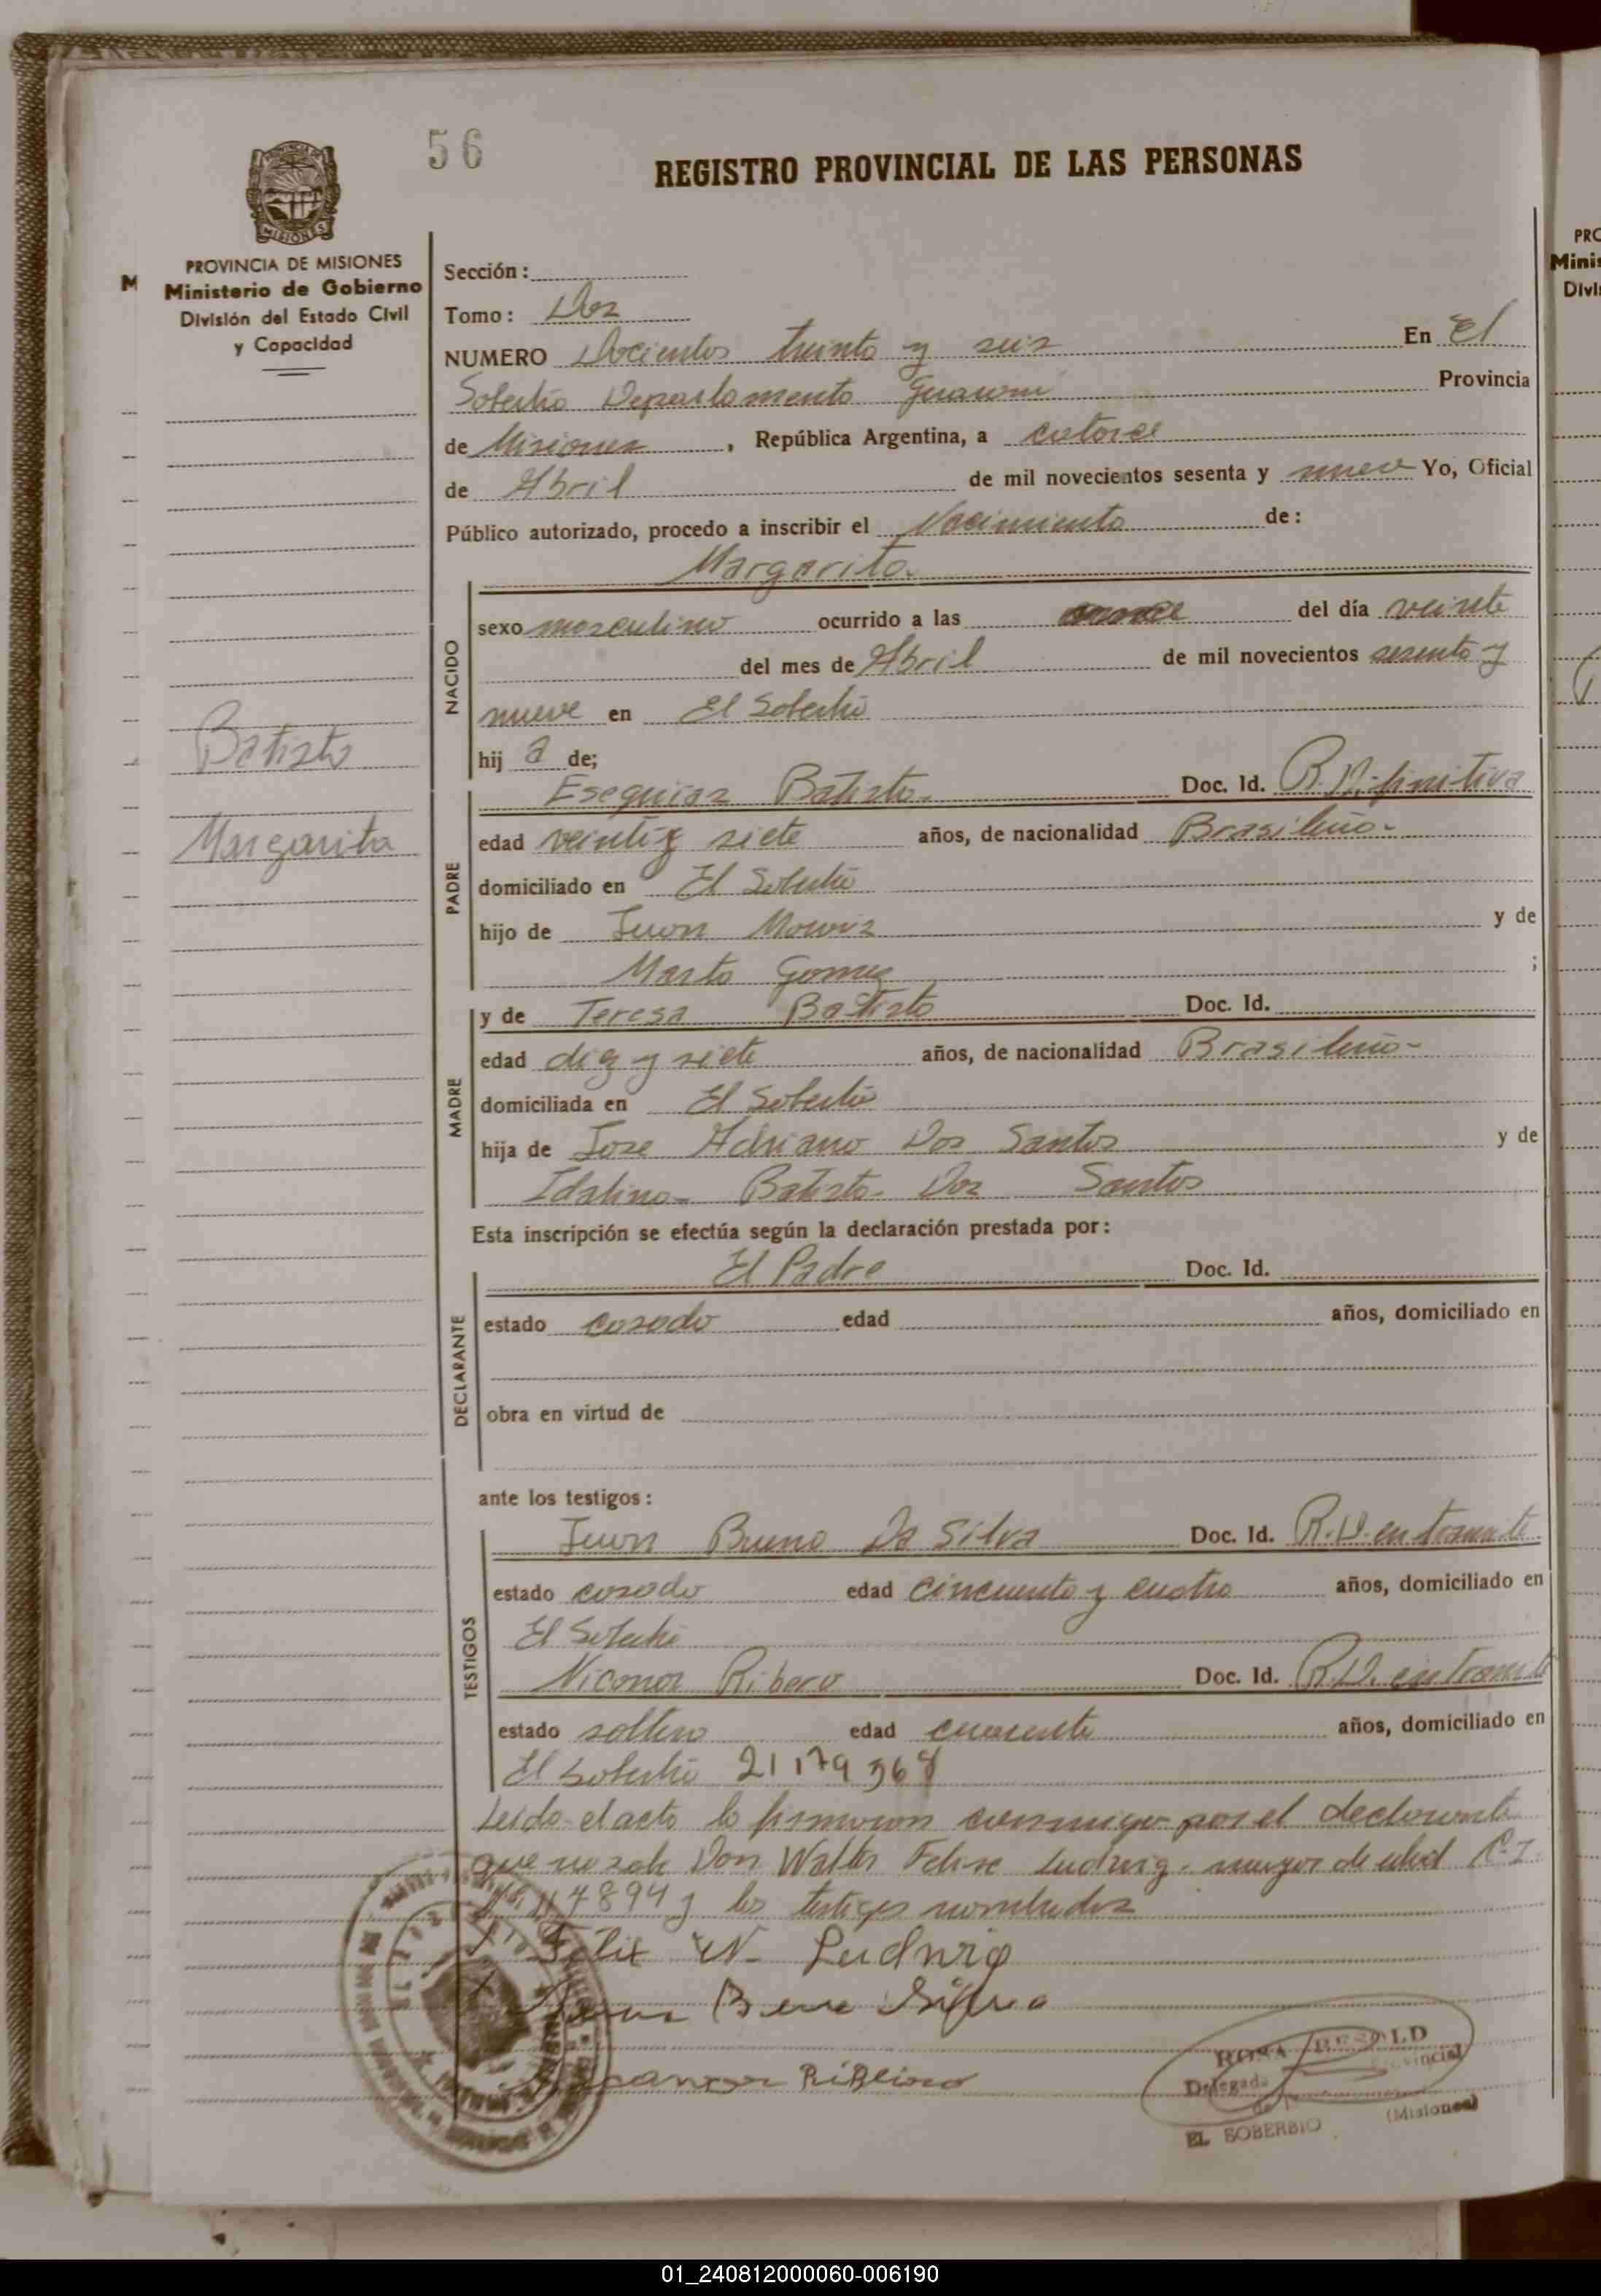 56
REGISTRO PROVINCIAL DE LAS PERSONAS
PROVINCIA DE MISIONES
Ministerio de Gobierno
División del Estado Civil
y Capacidad
Batista
Margarita
Sección:
Tomo: Dos
NUMERO Docientos treinta y seis En El
Soberbio Departamento Guarani Provincia
de Misiones, República Argentina, a catorce
de Abril de mil novecientos sesenta y nueve Yo, Oficial
Público autorizado, procedo a inscribir el Nacimiento de:
Margarita
NACIDO
sexo masculino ocurrido a las del día veinte
del mes de Abril de mil novecientos sesenta y
nueve en El Soberbio
hij a de;
PADRE
Esequias Batista Doc. Id. R. Difinitiva
edad veinti y siete años, de nacionalidad Brasileño
domiciliado en El Soberbio
hijo de Juan y de
Marta Gomez ;
MADRE
y de Teresa Batista Doc. Id.
edad diez y siete años, de nacionalidad Brasileño
domiciliada en El Soberbio
hija de Jose Adriano Dos Santos y de
Idalina Batista Dos Santos
Esta inscripción se efectúa según la declaración prestada por:
DECLARANTE
El Padre Doc. Id.
estado casado edad años, domiciliado en
obra en virtud de
ante los testigos:
TESTIGOS
Juan Bruno Da Silva Doc. Id. R.D. en tramite
estado casado edad cincuenta y cuatro años, domiciliado en
El Soberbio
Niconor Ribero Doc. Id. R.D. en tramite
estado soltero edad cuarenta años, domiciliado en
El Soberbio 21179368
Leido el acto lo firmaron conmigo por el declarante
que no sabe Don Walter Felix Ludwig mayor de edad C.I.
y los testigos nombrados
Felix W. Ludwig
Ribeiro
ROSA BESOLD
Delegada Provincial
EL SOBERBIO (Misiones)
01_240812000060-006190